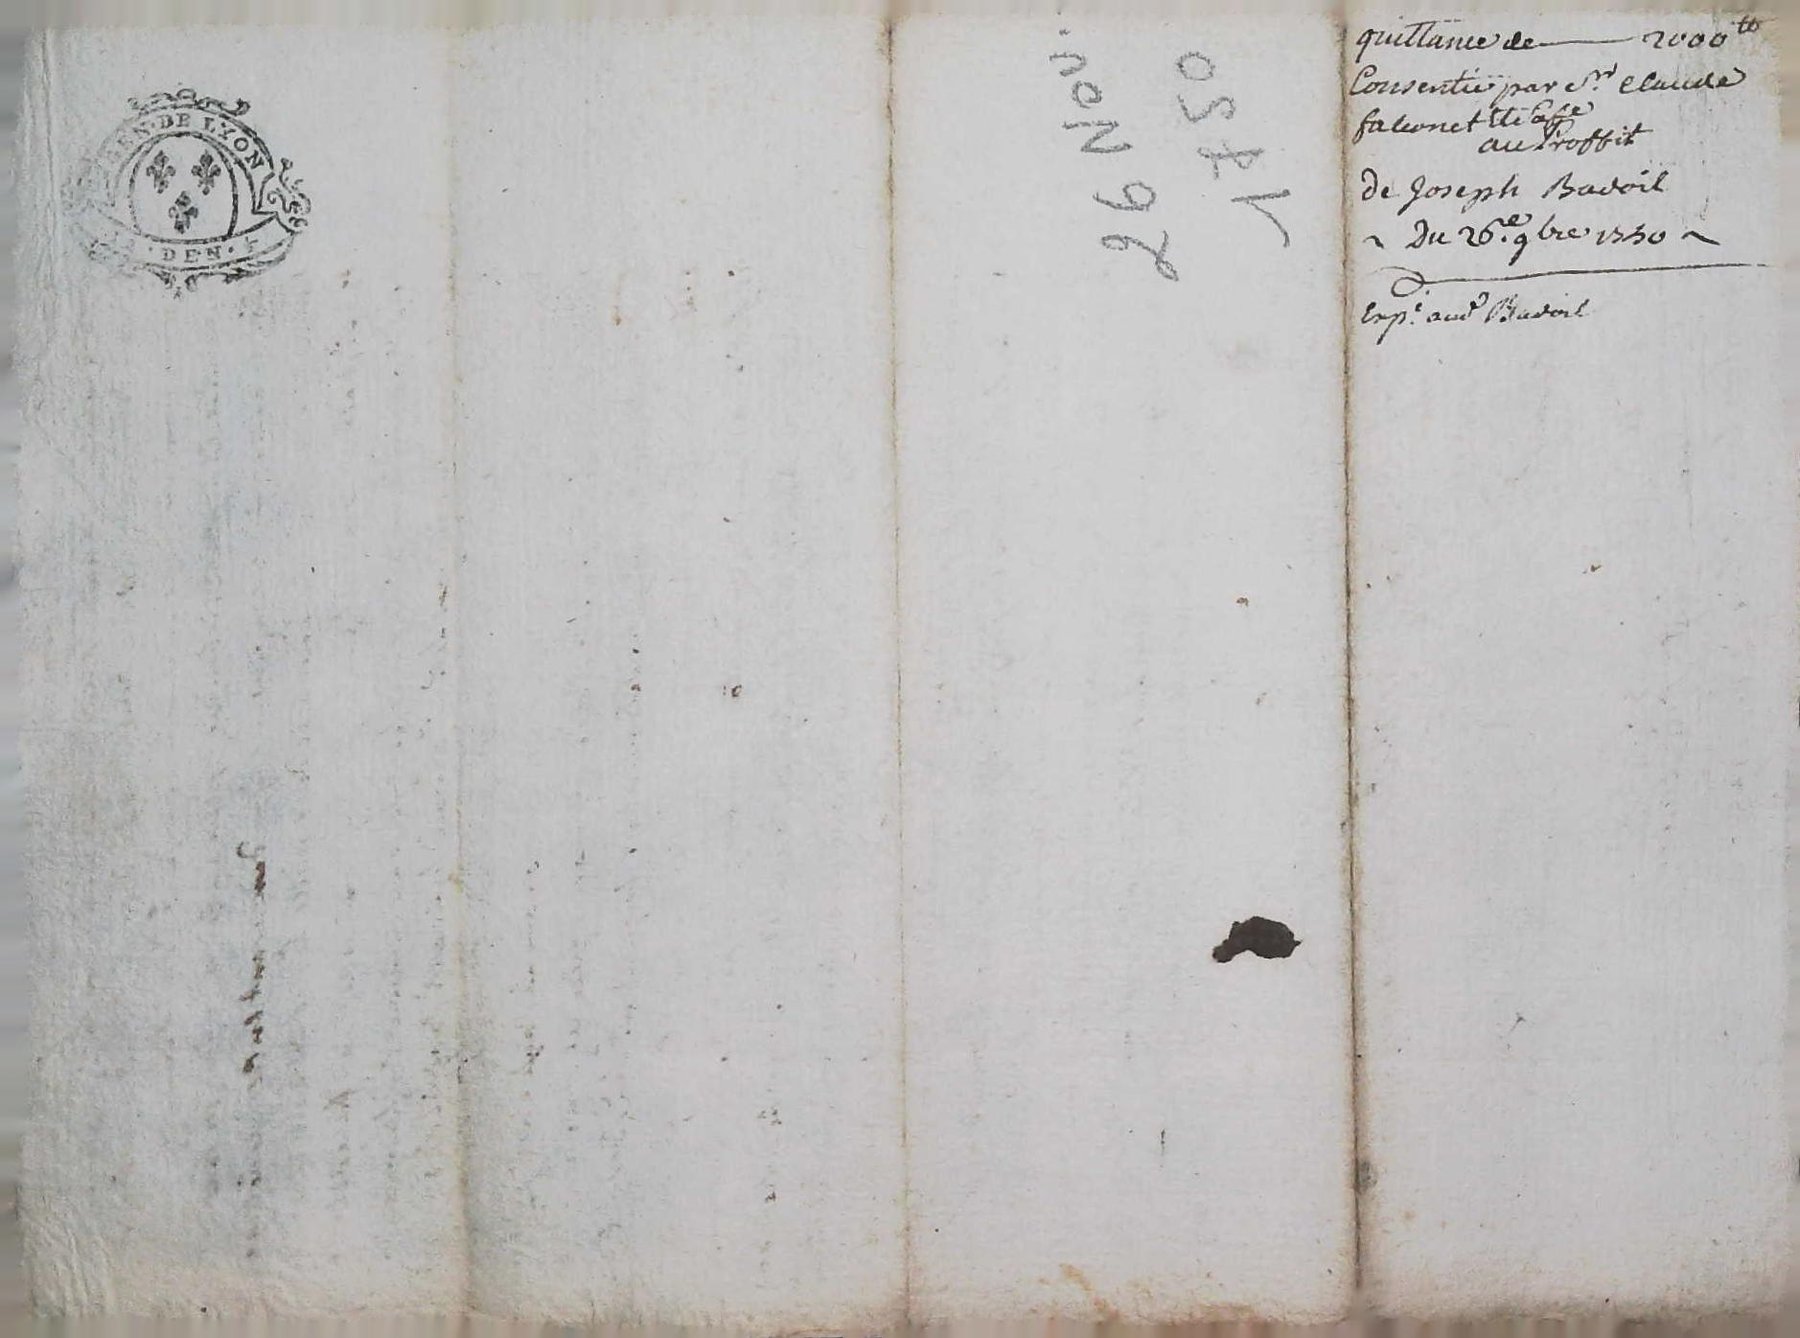 GEN · DE LYON
· DEN ·
26 Nov.
1750
quittance de 2000 tt
Consentie par Sr. Claude
falconet
au Proffit
de Joseph Badoil
~ Du 26e. 9bre 1750 ~
Exp.é aud Badoil